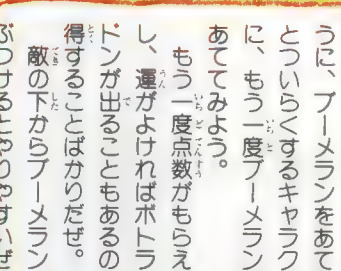 うに、ブーメランをあて
とついらくするキャラク
に、もう一度ブーメラン
あててみよう。
もう一度点数がもらえ
し、運がよければボトラ
ドンが出ることもあるの
得することばかりだぜ。
敵の下からブーメラン
ぶつけるとやりやすいぜ